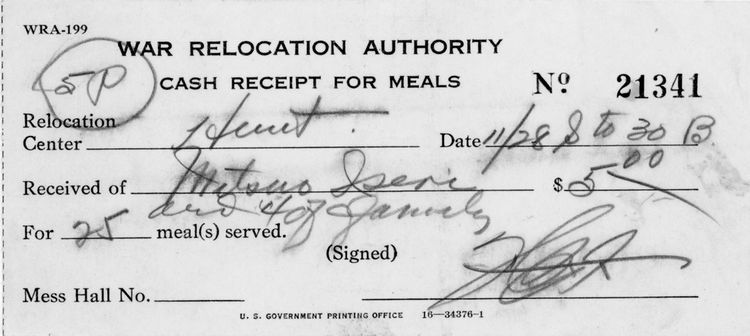 WRA-199
WAR RELOCATION AUTHORITY
5P
CASH RECEIPT FOR MEALS
Nº 21341
Relocation
Center Hunt. Date 11/28 S to 30 B
Received of Mitsuo Iseri $ 5.00
and 4 of family
For 25 meal(s) served.
(Signed)
Mess Hall No.
U. S. GOVERNMENT PRINTING OFFICE 16—34376-1